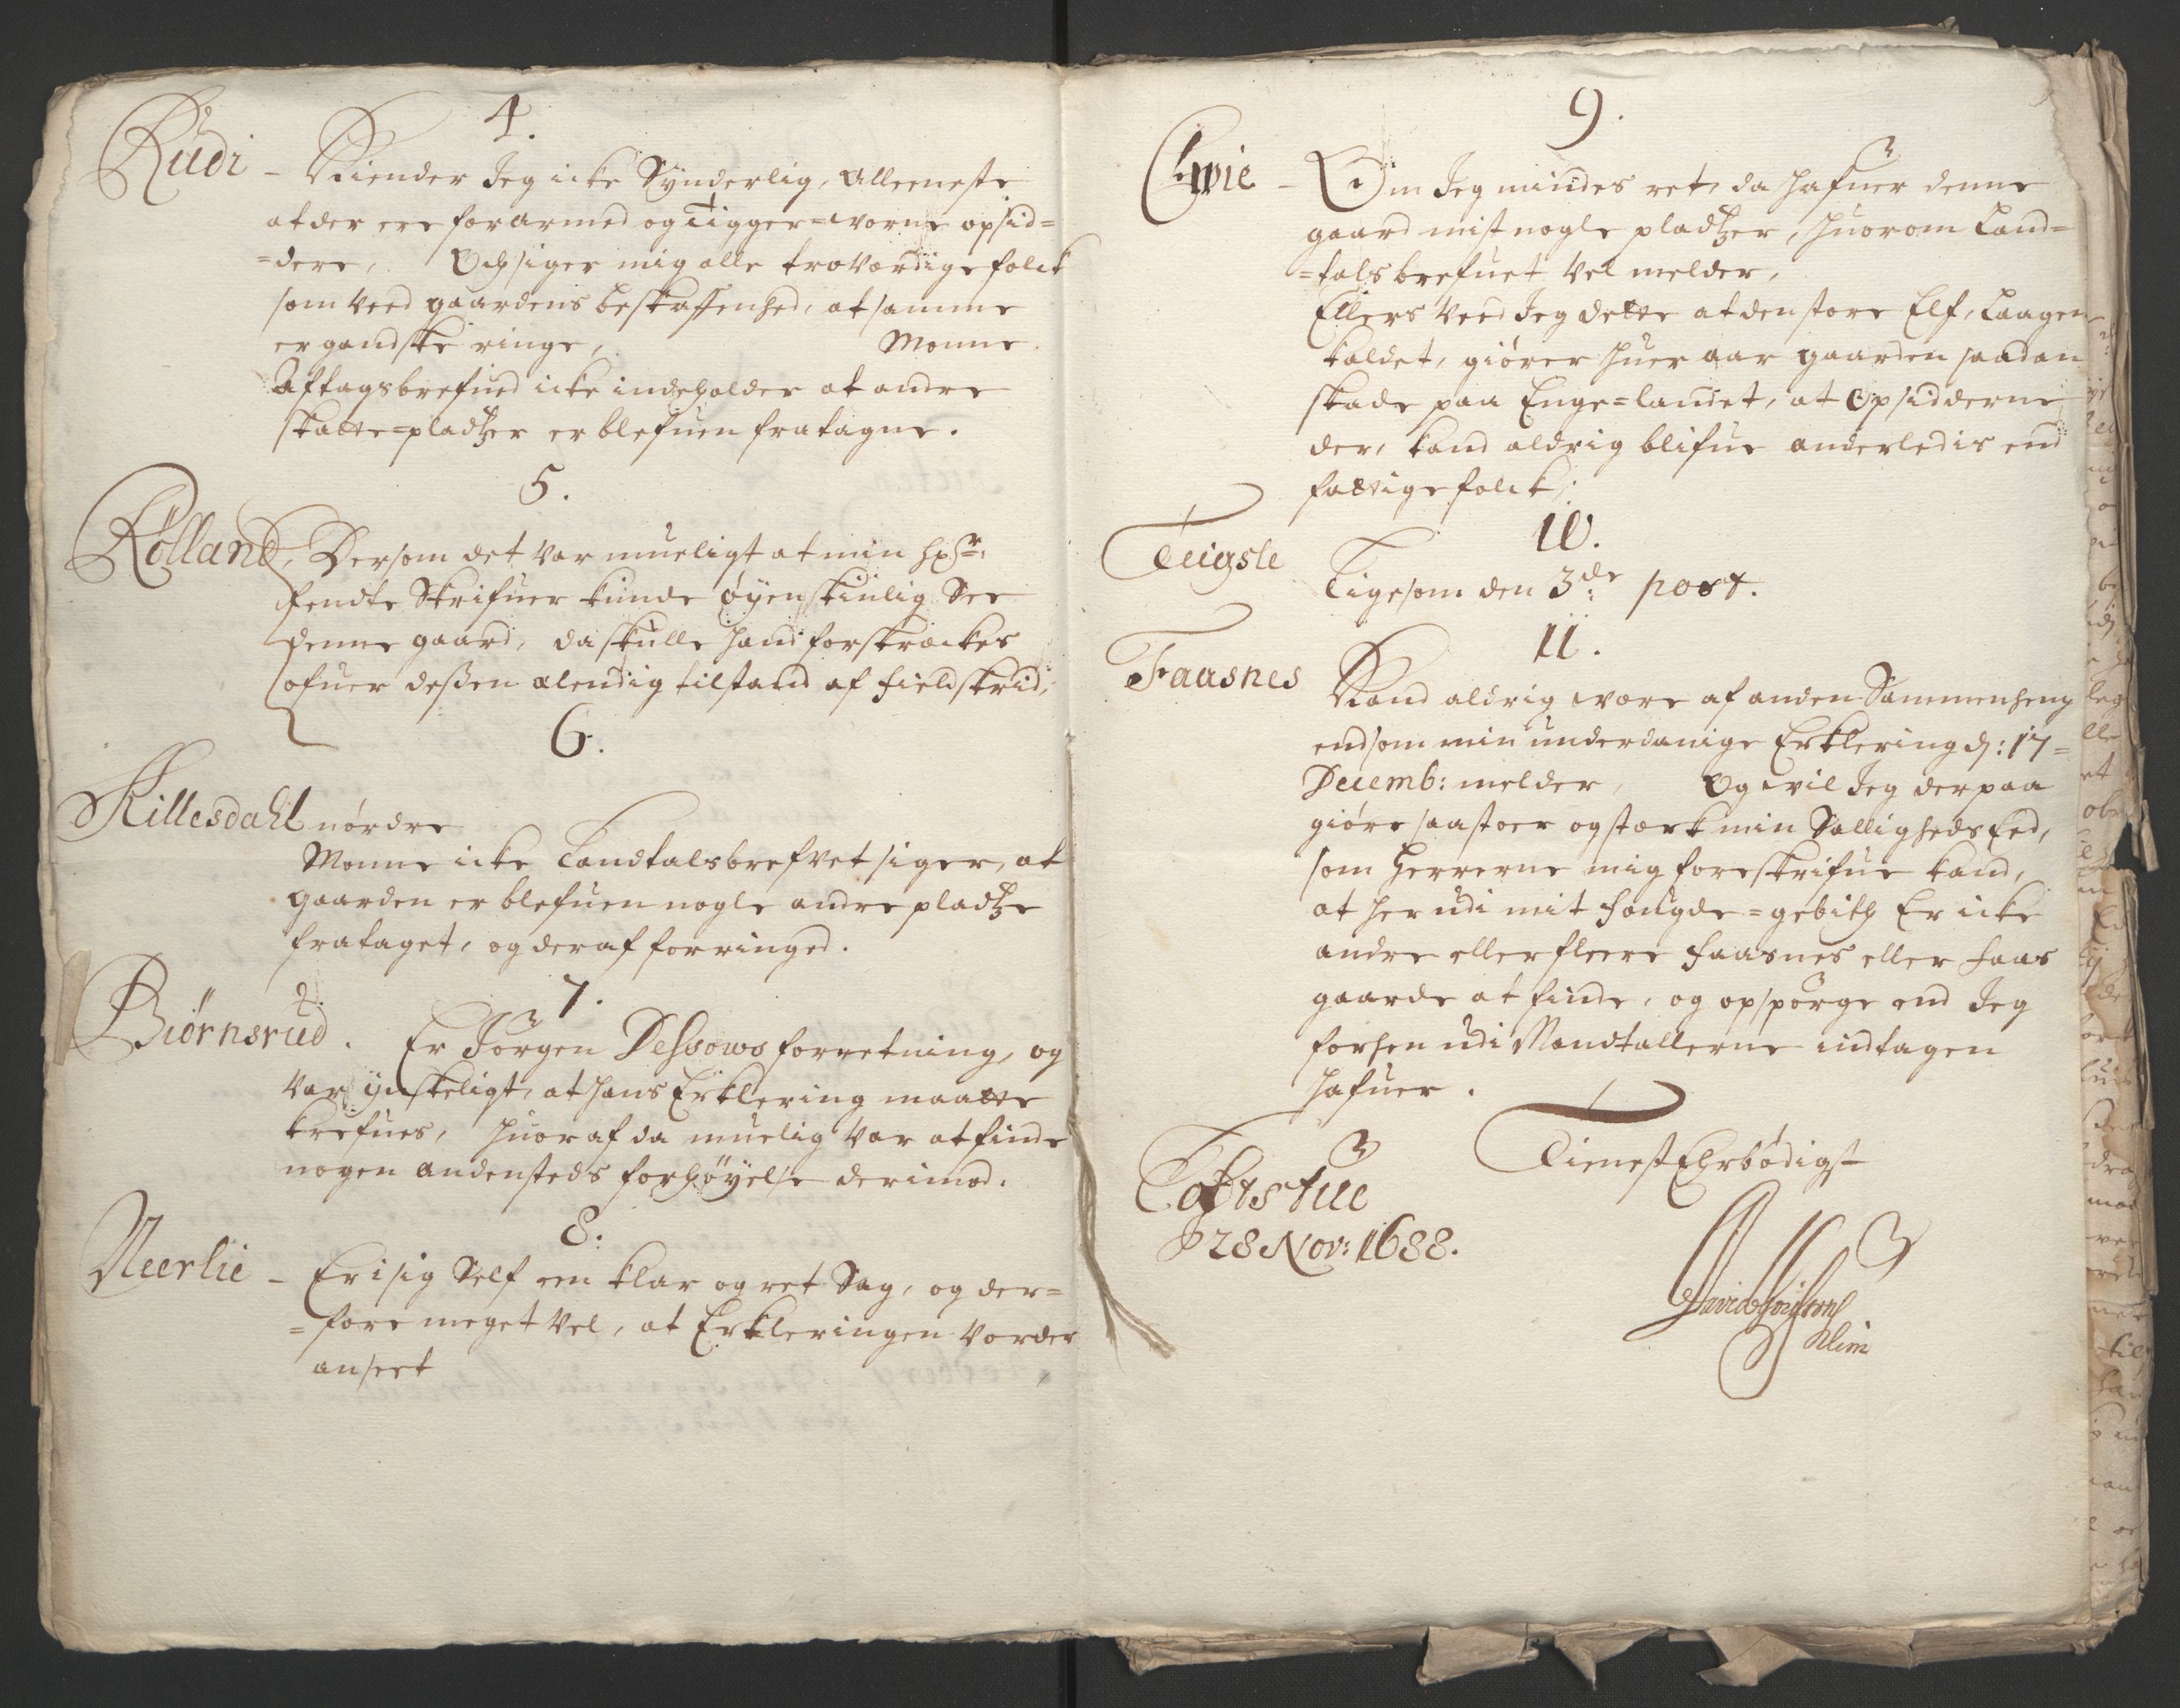 4.
Rudi - Kiender Jeg icke Synderlig, Alleeneste
at der ere forarmed og Tigger=worne opsid=
=dere, Och siger mig alle troværdige folck
som veed gaardens beskaffenhed, at samme
er gandske ringe, Monne
Aftagsbrefued icke indeholder at andre
skatte=pladtzer er blefuen fratagne.
5.
Rølland, Dersom det var mueligt at min
fendte Skrifuer kunde øyenskinlig See
denne gaard, da skulle hand forskreckes
ofuer deßen elendig tilstand af fieldskrid,
6.
Killesdahl nórdre
Monne icke Landtalsbrefvet siger, at
gaarden er blefuen nogle andre pladtze
frataget, og deraf forringed.
7.
Biørnsrud. Er Jørgen Dessows forretning, og
var ynskeligt, at hans Erklering maatte
krefues, huoraf da muelig var at finde
nogen andensteds forhøyelse derimod.
8.
Neerlie - Er i sig Self een klar og ret Sag, og der=
=fore meget vel, at Erkleringen vorder
anseet
9.
Om Jeg mindes ret, da hafuer denne
gaard mist nogle pladtzer, huorom Land=
=talsbrefuet vel melder,
Ellers veed Jeg dette at den store Elf, Laagen
kaldet, giører huer aar gaarden saadan
skade paa Enge=landet, at Opsidderne
der, kand aldrig blifue anderledis end
fattige folck,
10.
Teigsle Ligesom den 3de post.
11.
Faasnes Kand aldrig være af anden Sammenheng
end som min underdanige Erklering d: 17=
Decemb: melder, Og vil Jeg derpaa
giøre saa stoer og stærk min Salligheds Eed,
som Herrerne mig foreskrifue kand,
at her udi mit fougde=gebith Er icke
andre eller fleere faasnes eller faas
gaarde at finde, og opspørge end Jeg
forhen udi Mandtallerne indtagen
hafuer.
Tienest Ehrbødigst
Toftstue
28 Nov: 1688.
David
Klim